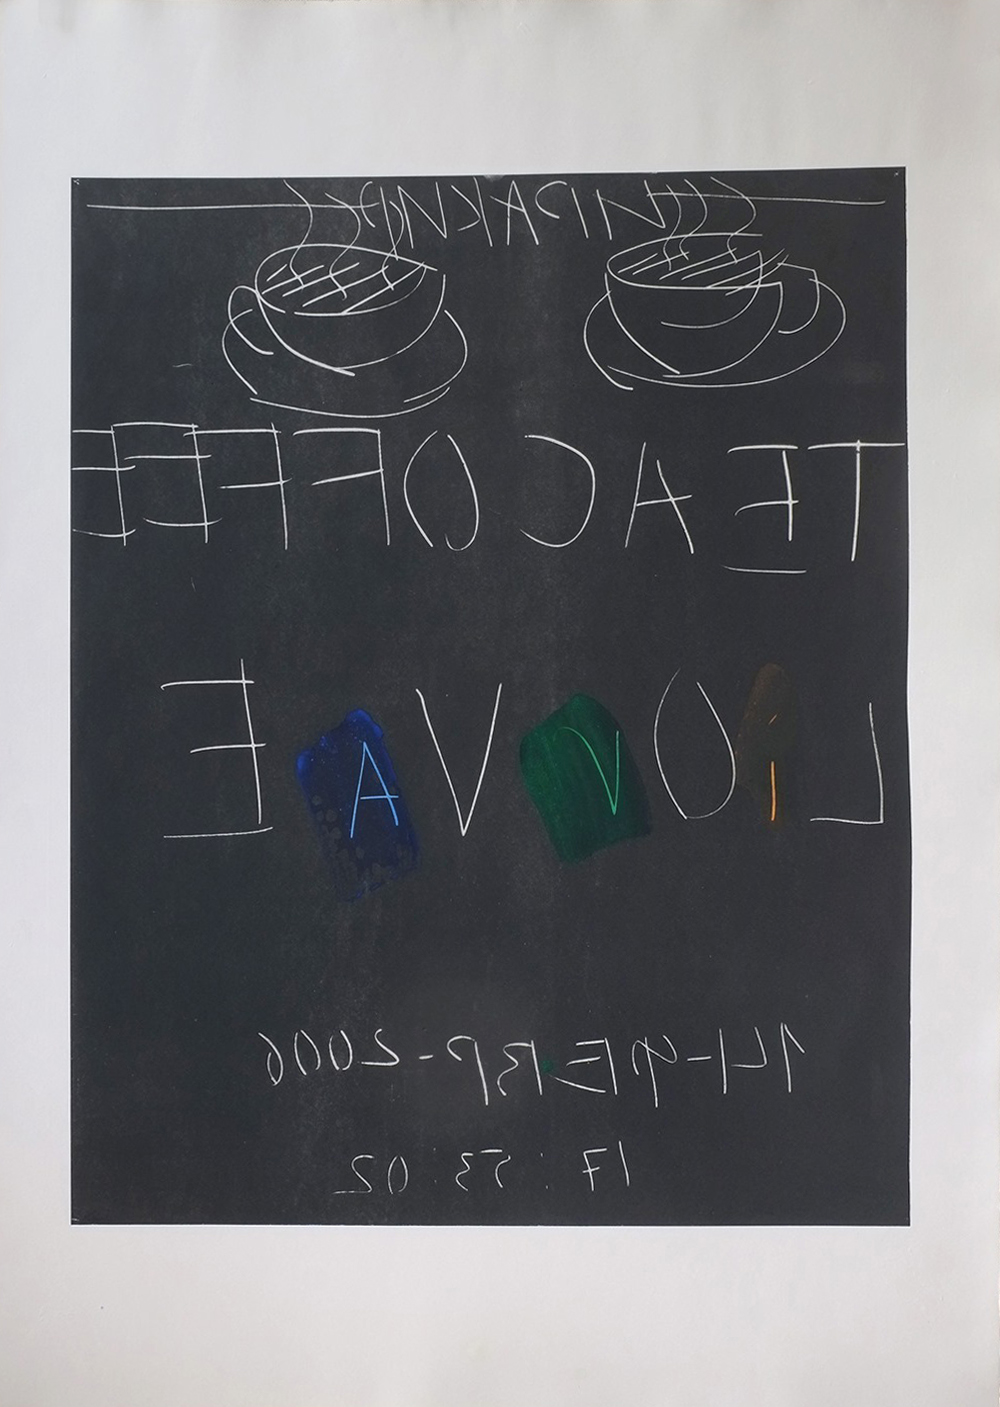 TEACOFFEE
LiOVVAE
14-ФЕВР-2006
17:53:02